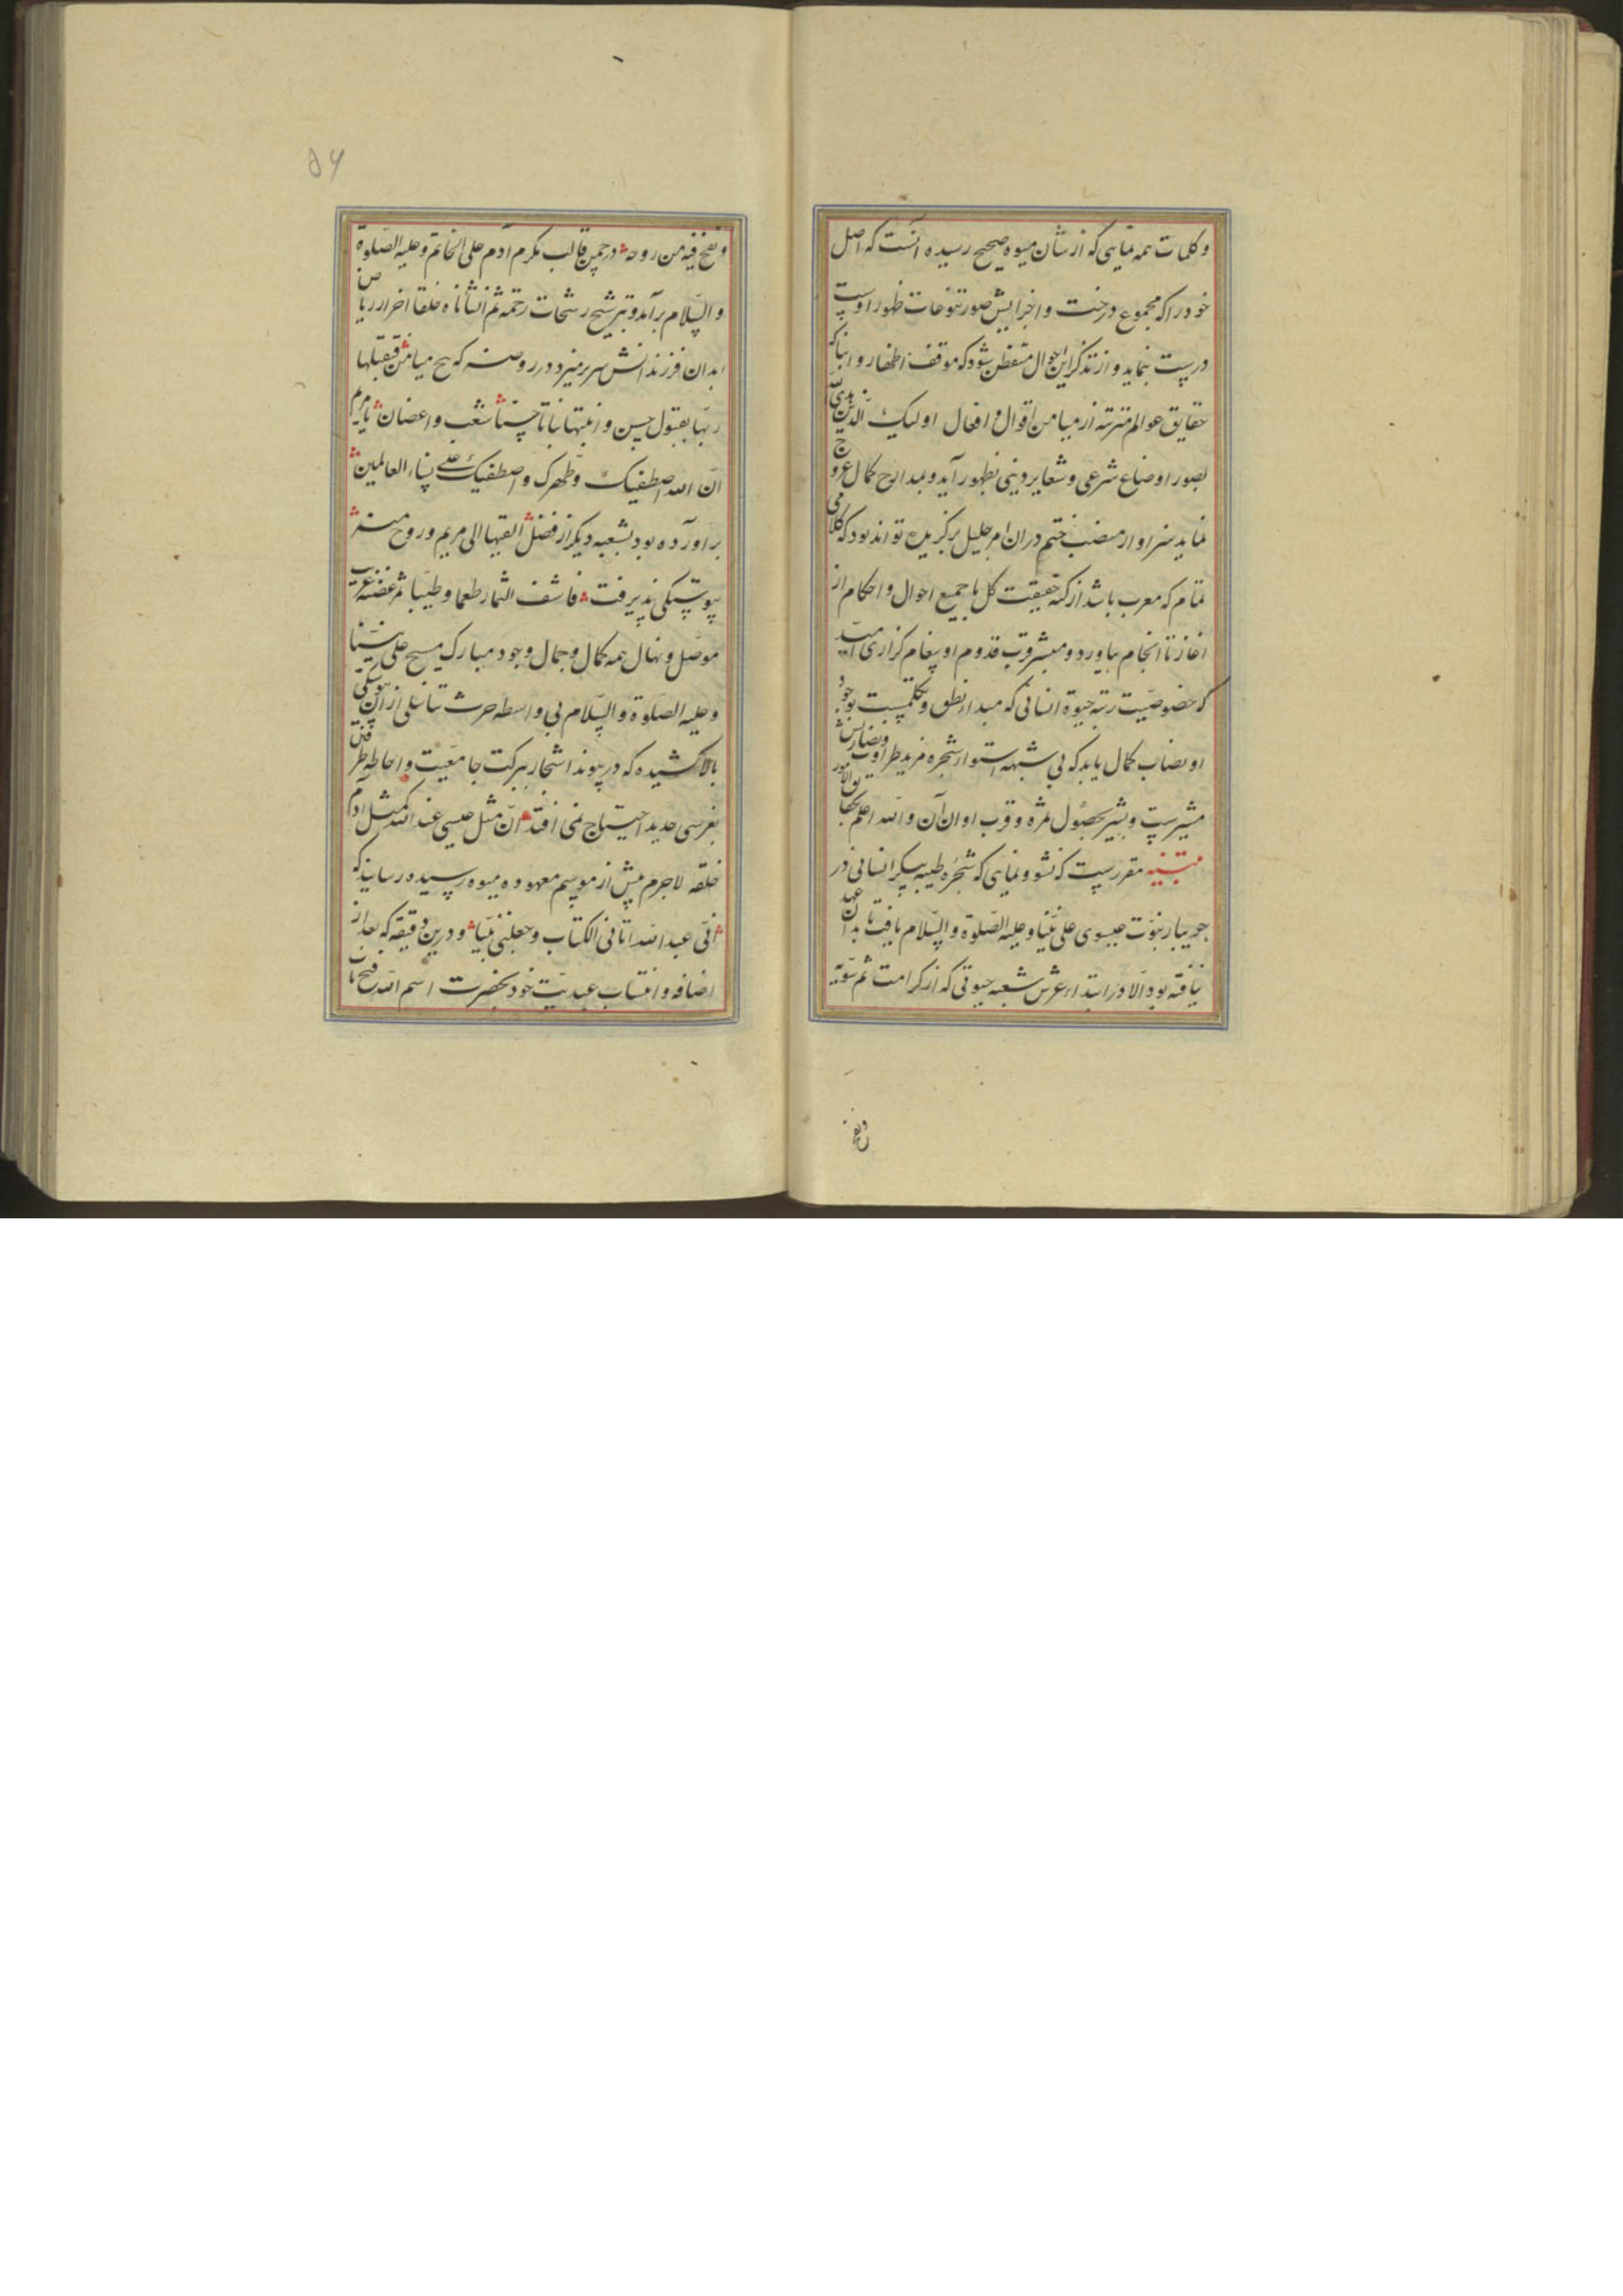 و کلمات همه نمایی که از شان میوه صحیح رسیده آنست که اصل
خود را که مجموع درخت و اجزایش صور تنوعات ظهور اوست
درست بنماید و از تذکر این احوال متفطن شود که موقف اظهار و انباء که
حقایق عوالم متنزله از میامن اقوال و افعال اولیک الذین هدی الله
بصور اوضاع شرعی و شعایر دینی بظهور آید و بمدارج کمال عروج
نماید سزاوار منصب ختم در ان امر جلیل برکزیده تواند بود که کلامی
تمام که معرب باشد از کنه حقیقت کل با جمیع احوال و احکام از
اغاز تا انجام بیاورد و مبشر قرب قدوم او پیغام کزاری آمد
که خصوصیت رتبه حیوة انسانی که مبداء نطق و تکلمست بوجود
او نصاب کمال یابد که بی شبهه استواء شجره مزید طراوت و نضارتش
مشیرست و بشیر بحصول ثمره و قرب اوان آن و الله اعلم بحقایق الامور
تنبیه مقررست که نشو و نمایی که شجره طیبه پیکر انسانی در
جویبار نبوت عیسوی علی نبینا و علیه الصلوة و السلام یافت تا بدان عهد
نیافته بود الا در ابتداء غرس شعبه حیوتی که از کرامت ثم سویه
ونفخ
۵۶
و نفخ فیه من روحه در چمن قالب مکرم آدم علی الخاتم و علیه الصلوة
و السلام برآمد و بترشیح رشحات رحمه ثم انشاناه خلقا اخر از ریاض
ابدان فرزندانش سر بر میزد در روضه که بح میامن فتقبلها
ربها بقبول حسن و انبتها نباتا حسنا شعب و اغصان یا مریم
ان الله اصطفیک و طهرک و اصطفیک علی نساء العالمین
براورده بود بشعبه دیکر از فضل القیها الی مریم و روح منه
پیوستکی پذیرفت فاشف الثمار طعما و طیبا ثمر غصنه غریب
موصل و نهال همه کمال و جمال وجود مبارک مسیح علی نبینا
و علیه الصلوة و السلام بی واسطه حرث تناسلی از ان پیوستکی
بالا کشیده که در پیوند اشجار ببرکت جامعیت و احاطه طرفین
بغرسی جدید احتیاج نمی افتد ان مثل عیسی عند الله کمثل ادم
خلقه لاجرم پیش از موسم معهوده میوه رسیده رسانید که
انی عبد الله اتانی الکتاب و جعلنی نبیا و درین دقیقه که بعد از
اضافه و انتساب عبدیت خود بحضرت اسم الله فتح باب